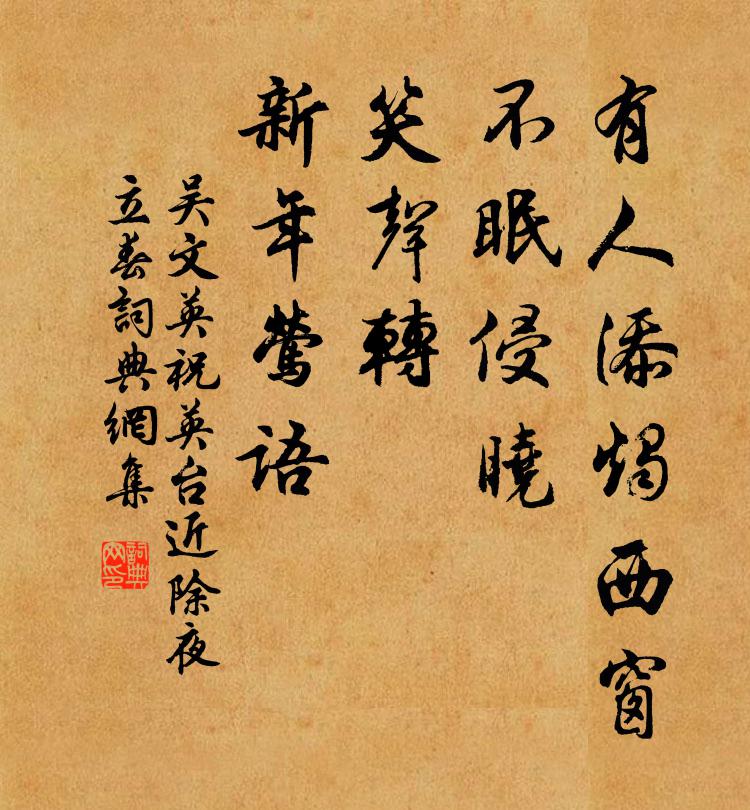 有人添燭西窗
不眠侵曉
笑聲轉
新年鶯語
吳文英祝英台近除夜
立春詞典網集
詞典
网印